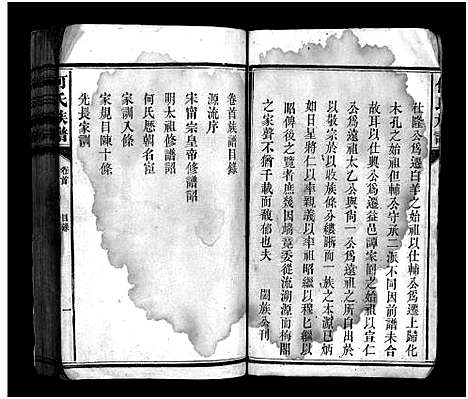 仕隆公爲遷白羊之始祖以仕輔公爲遷上歸化
木孔之始祖但輔公守承二派不同因前譜未合
公爲一以仕興公爲遷益邑譚家園之始祖以宣仁
公爲遠祖太乙公與尙一公爲遠祖之所自出於
以敬宗於以收族條分縷晰而一族之本源已炳
如日星將仁以率親義以率祖昭繼以穆匕繼以
昭俾後之覽者庶幾因端竟委從流溯源而梅閣
之家聲不猶千載而馥郁也夫
闔族公刊
何氏族譜
卷首族譜目錄
源流序
宋甯宗皇帝修譜詔
明太祖修譜詔
何氏歷朝名宦
家訓八條
家規目陳十條
先長家訓
何氏族譜
卷首
目錄
一